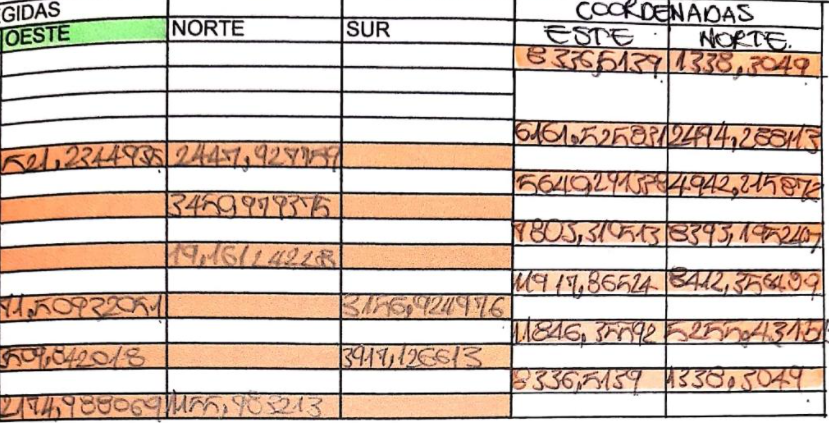 GIDAS COORDENADAS
OESTE NORTE SUR ESTE NORTE
8336,5139 1338,3049
6161,525831 2494,288113
521,2344935 2447,927759
5640,291338 4942,215872
3450,979375
9803,319513 8393,195247
19,16124228
11917,86524 8412,356489
71,50932051 3156,924976
11846,35592 5255,43151
509,842018 3917,126613
8336,5139 1338,3049
2174,988069 1155,983213